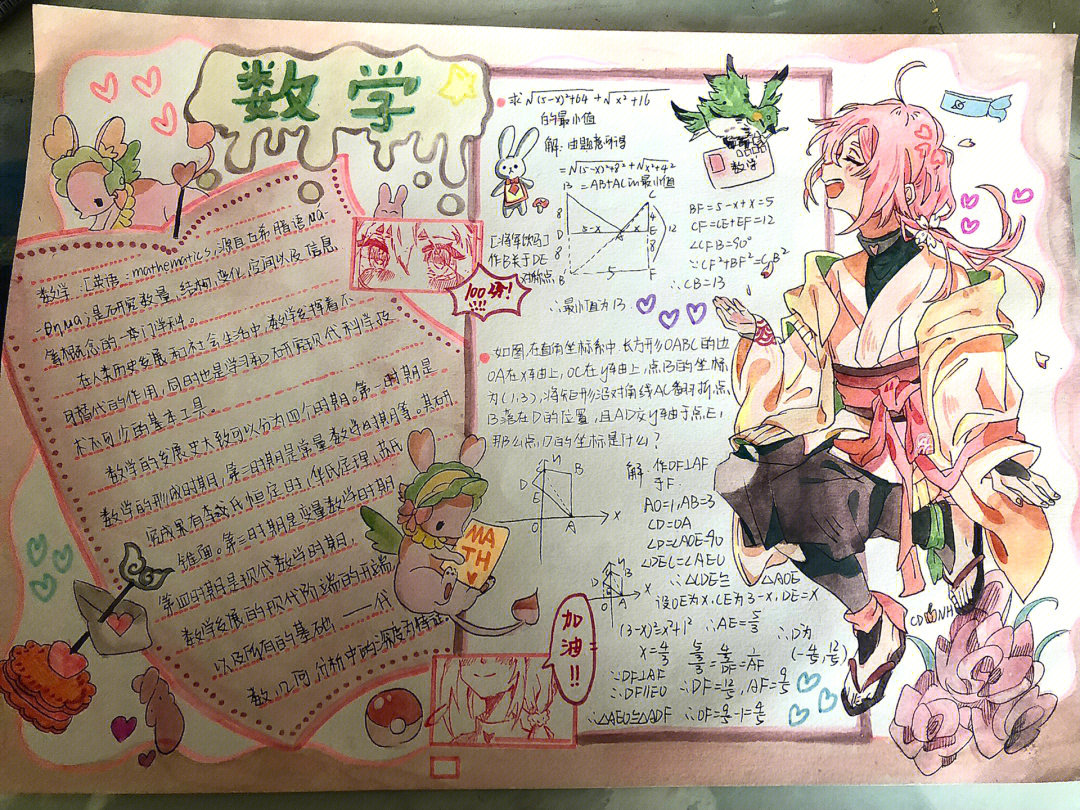 数学
数学：[英语：mathematics，源自古希腊语μα-
-θημα]是研究数量，结构，变化，空间以及信息
等概念的一门学科。
在人类历史发展和社会生活中，数学发挥着不
可替代的作用，同时也是学习和研究现代科学技
术不可少的基本工具。
数学的发展史大致可以分为四个时期。第一时期是
数学的形成时期，第二时期是常量数学时期等。其研
究成果有李氏恒定时，华氏定理，苏氏
锥面。第三时期是变量数学时期
第四时期是现代数学时期，
数学发展的现代阶段的开端
以及所有的基础——代
数，几何，分析中的深度为特征.
100分!
!!!
MA
TH
加油!!
求√(5-x)²+64 + √x²+16
的最小值
解：由题意可得
=√(5-x)²+8² + √x²+4²
13 = AB+AC的最小值
[将军饮马]
作B关于DE
对称点
8
D
8
B
5-x
A
x
5
C
4
E
8
F
12
BF=5-x+x=5
CF=CE+EF=12
∠CFB=90°
∵CF²+BF²=CB²
∴CB=13
∴最小值为13
数学
如图，在直角坐标系中，长方形OABC的边
OA在x轴上，OC在y轴上，点B的坐标
为(1,3)，将矩形沿对角线AC翻折，点
B落在D的位置，且AD交y轴于点E，
那么点D的坐标是什么？
y
C
B
D
E
O
A
x
解：作DF⊥AF
于F.
AO=1,AB=3
CD=OA
∠D=∠AOE=90
∠DEC=∠AEO
∴△CDE≌△AOE
设OE为x,CE为3-x,DE=x
(3-x)²=x²+1²
∴AE=5/3
∴D为
x=4/3
(-4/5,12/5)
∵DF⊥AF
∴DF∥EO
∴DF=12/5,AF=9/5
∴△AEO≌△ADF
∴OF=9/5-1=4/5